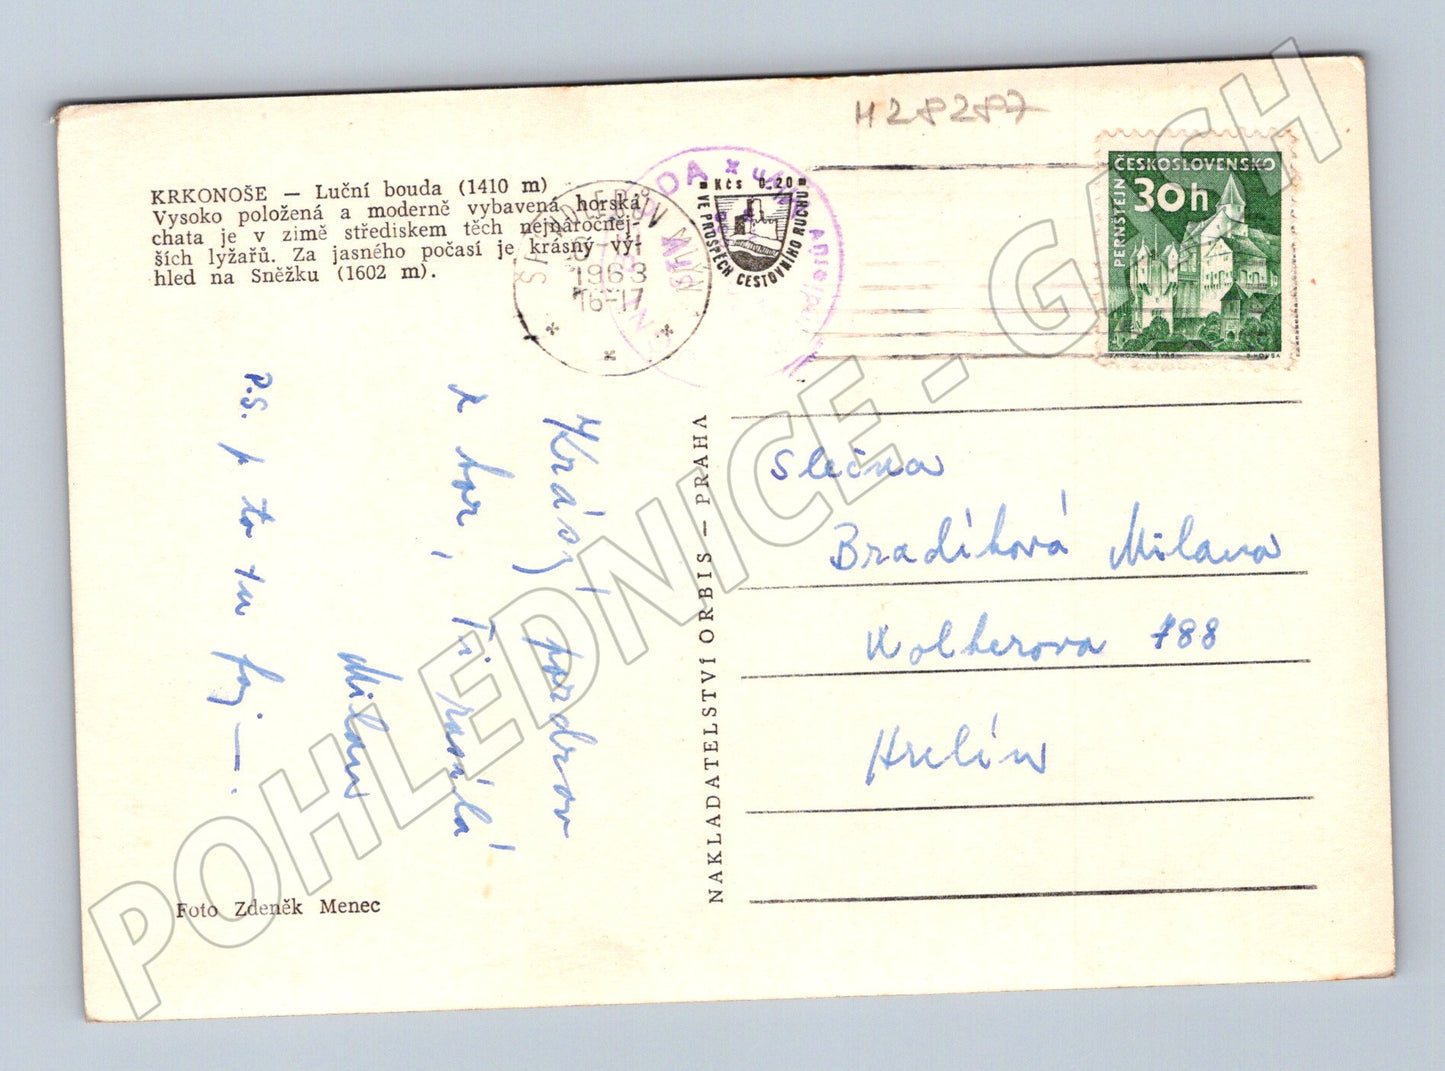 H 28287
KRKONOŠE — Luční bouda (1410 m)
Vysoko položená a moderně vybavená horská
chata je v zimě střediskem těch nejnáročněj-
ších lyžařů. Za jasného počasí je krásný vý-
hled na Sněžku (1602 m).
ŠPINDLERŮV MLÝN
1963
16-17
Kčs 0.20
VE PROSPĚCH CESTOVNÍHO RUCHU
BOUDA
ČESKOSLOVENSKO
30h
PERNŠTEJN
JAROSLAV LUKAVSKÝ
Krásný pozdrav
z hor, Ti zasílá
Milan
P.S. je to tu faj —.
NAKLADATELSTVÍ ORBIS — PRAHA
Slečna
Bradíková Milana
Wolkerova 788
Foto Zdeněk Menec
POHLEDNICE - GASH